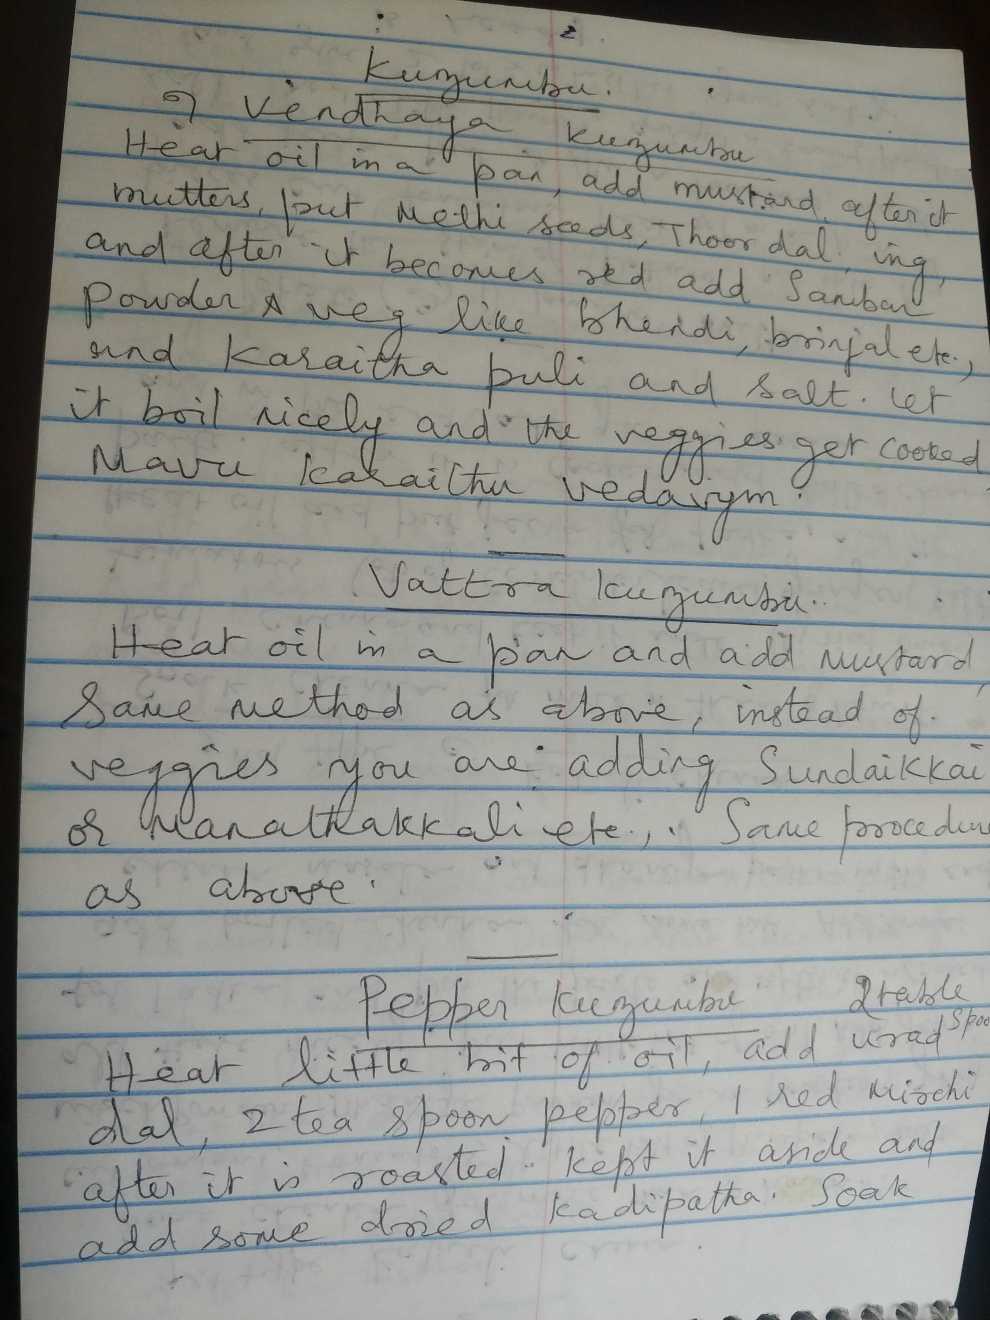 2
Kuzumbu.
Vendhaya Kuzumbu
Heat oil in a pan, add mustard, after it
mutters, put Methi seeds, Thoor dal, ing,
and after it becomes red add Sambar
Powder & veg like bhendi, brinjal etc.,
and Karaitha puli and salt. let
it boil nicely and the veggies get cooked
Mavu Karaithu vedavym.
Vattra Kuzumbu.
Heat oil in a pan and add mustard,
Same method as above, instead of
veggies you are adding Sundaikkai
or Manathakkali etc., Same procedure
as above.
Pepper Kuzumbu 2 table
Heat little bit of oil, add urad spoo
dal, 2 tea spoon pepper, 1 red mirchi
after it is roasted. kept it aside and
add some dried kadipatha. Soak